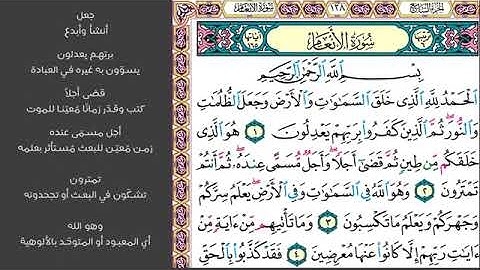 الجزء السابع ١٢٨ سورة الأنعام
سورة الأنعام
بسم الله الرحمن الرحيم
ٱلۡحَمۡدُ لِلَّهِ ٱلَّذِي خَلَقَ ٱلسَّمَٰوَٰتِ وَٱلۡأَرۡضَ وَجَعَلَ ٱلظُّلُمَٰتِ
وَٱلنُّورَۖ ثُمَّ ٱلَّذِينَ كَفَرُواْ بِرَبِّهِمۡ يَعۡدِلُونَ ١ هُوَ ٱلَّذِي
خَلَقَكُم مِّن طِينٖ ثُمَّ قَضَىٰٓ أَجَلٗاۖ وَأَجَلٞ مُّسَمًّى عِندَهُۥۖ ثُمَّ أَنتُمۡ
تَمۡتَرُونَ ٢ وَهُوَ ٱللَّهُ فِي ٱلسَّمَٰوَٰتِ وَفِي ٱلۡأَرۡضِ يَعۡلَمُ سِرَّكُمۡ
وَجَهۡرَكُمۡ وَيَعۡلَمُ مَا تَكۡسِبُونَ ٣ وَمَا تَأۡتِيهِم مِّنۡ ءَايَةٖ مِّنۡ
ءَايَٰتِ رَبِّهِمۡ إِلَّا كَانُواْ عَنۡهَا مُعۡرِضِينَ ٤ فَقَدۡ كَذَّبُواْ بِٱلۡحَقِّ
جعل
أنشأ وأبدع
بربّهم يعدلون
يسوّون به غيره في العبادة
قضى أجلاً
كتب وقدّر زمانًا مُعيّنًا للموت
أجل مسمّى عنده
زمن معيّن للبعث مستأثر بعلمه
تمترون
تشكّون في البعث أو تجحدونه
وهو الله
أي المعبود أو المتوحّد بالألوهية